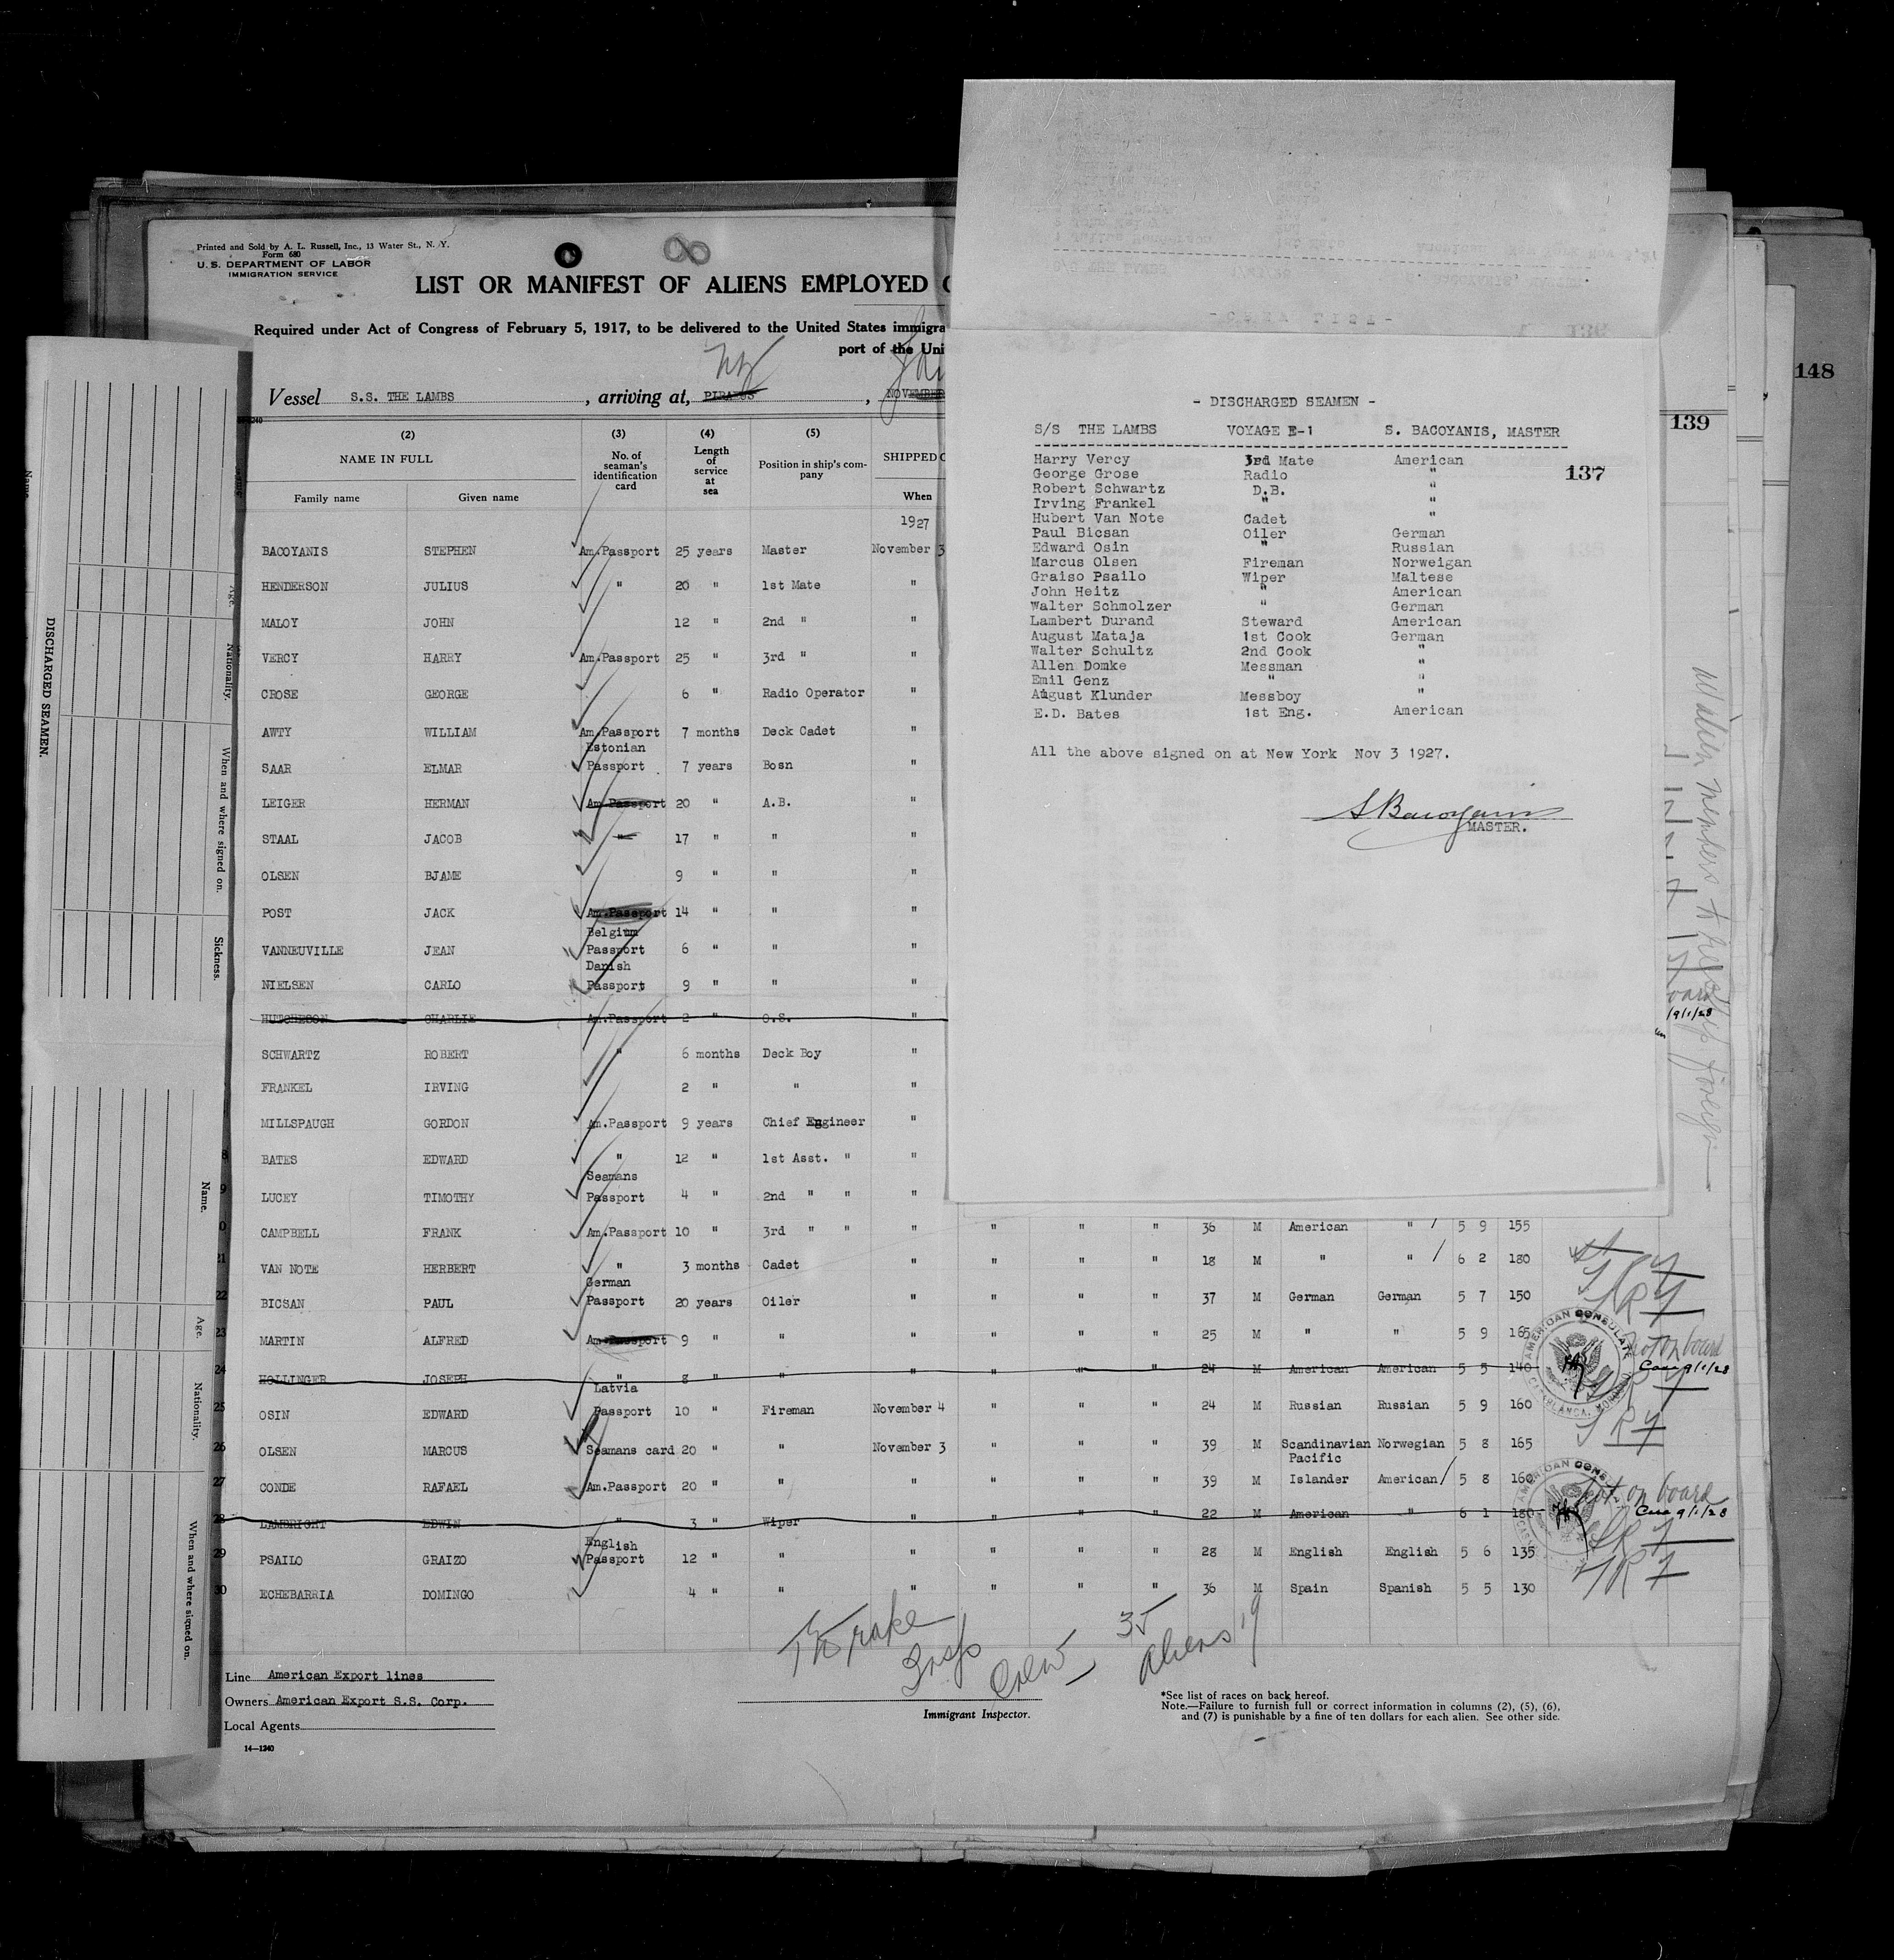 Printed and Sold by A. L. Russell, Inc., 13 Water St., N. Y.
Form 680
U. S. DEPARTMENT OF LABOR
IMMIGRATION SERVICE
LIST OR MANIFEST OF ALIENS EMPLOYED
Required under Act of Congress of February 5, 1917, to be delivered to the United States immigra
port of the Uni
Vessel S.S. THE LAMBS , arriving at, PIRAEUS , NOVEMBER
(2) (3) (4) (5)
NAME IN FULL No. of seaman's identification card Length of service at sea Position in ship's company SHIPPED
Family name Given name When
1927
BACOYANIS STEPHEN Am.Passport 25 years Master November 3
HENDERSON JULIUS " 20 " 1st Mate "
MALOY JOHN 12 " 2nd " "
VERCY HARRY Am.Passport 25 " 3rd " "
CROSE GEORGE 6 " Radio Operator "
AWTY WILLIAM Am.Passport 7 months Deck Cadet "
SAAR ELMAR Estonian Passport 7 years Bosn "
LEIGER HERMAN Am.Passport 20 " A.B. "
STAAL JACOB " 17 " " "
OLSEN BJAME 9 " " "
POST JACK Am.Passport 14 " " "
VANNEUVILLE JEAN Belgium Passport 6 " " "
NIELSEN CARLO Danish Passport 9 " " "
HUTCHESON CHARLIE Am.Passport 2 " O.S. "
SCHWARTZ ROBERT " 6 months Deck Boy "
FRANKEL IRVING 2 " " "
MILLSPAUGH GORDON Am.Passport 9 years Chief Engineer "
BATES EDWARD " 12 " 1st Asst. " "
LUCEY TIMOTHY Seamans Passport 4 " 2nd " " "
CAMPBELL FRANK Am.Passport 10 " 3rd " " " " " " 36 M American " 5 9 155
21 VAN NOTE HERBERT " 3 months Cadet " " " " 18 M " " 6 2 180
22 BICSAN PAUL German Passport 20 years Oiler " " " " 37 M German German 5 7 150
23 MARTIN ALFRED Am.Passport 9 " " " " " " 25 M " " 5 9 165 Not on board
24 HOLLINGER JOSEPH " 8 " " " " " " 24 M American American 5 5 140 9/1/28
25 OSIN EDWARD Latvia Passport 10 " Fireman November 4 " " " 24 M Russian Russian 5 9 160
26 OLSEN MARCUS Seamans card 20 " " November 3 " " " 39 M Scandinavian Norwegian 5 8 165
27 CONDE RAFAEL Am.Passport 20 " " " " " " 39 M Pacific Islander American 5 8 160 Not on board
28 LAMBRIGHT EDWIN " 3 " Wiper " " " " 22 M American " 6 1 180 9/1/28
29 PSAILO GRAIZO English Passport 12 " " " " " " 28 M English English 5 6 135
30 ECHEBARRIA DOMINGO 4 " " " " " " 36 M Spain Spanish 5 5 130
AMERICAN CONSULATE
CASABLANCA, MOROCCO
Crew 35
Aliens 19
Insp
Line American Export lines
Owners American Export S.S. Corp.
Local Agents
14—1240
Immigrant Inspector.
*See list of races on back hereof.
Note.—Failure to furnish full or correct information in columns (2), (5), (6),
and (7) is punishable by a fine of ten dollars for each alien. See other side.
- DISCHARGED SEAMEN -
S/S THE LAMBS VOYAGE E-1 S. BACOYANIS, MASTER
137
Harry Vercy 3rd Mate American
George Grose Radio "
Robert Schwartz D.B. "
Irving Frankel " "
Hubert Van Note Cadet "
Paul Bicsan Oiler German
Edward Osin " Russian
Marcus Olsen Fireman Norweigan
Graiso Psailo Wiper Maltese
John Heitz " American
Walter Schmolzer " German
Lambert Durand Steward American
August Mataja 1st Cook German
Walter Schultz 2nd Cook "
Allen Domke Messman "
Emil Genz " "
August Klunder Messboy "
E.D. Bates 1st Eng. American
All the above signed on at New York Nov 3 1927.
S Bacoyanis
MASTER.
139
148
9/1/28
DISCHARGED SEAMEN.
Name.
Age.
Nationality.
When and where signed on.
Sickness.
Name.
Age.
Nationality.
When and where signed on.